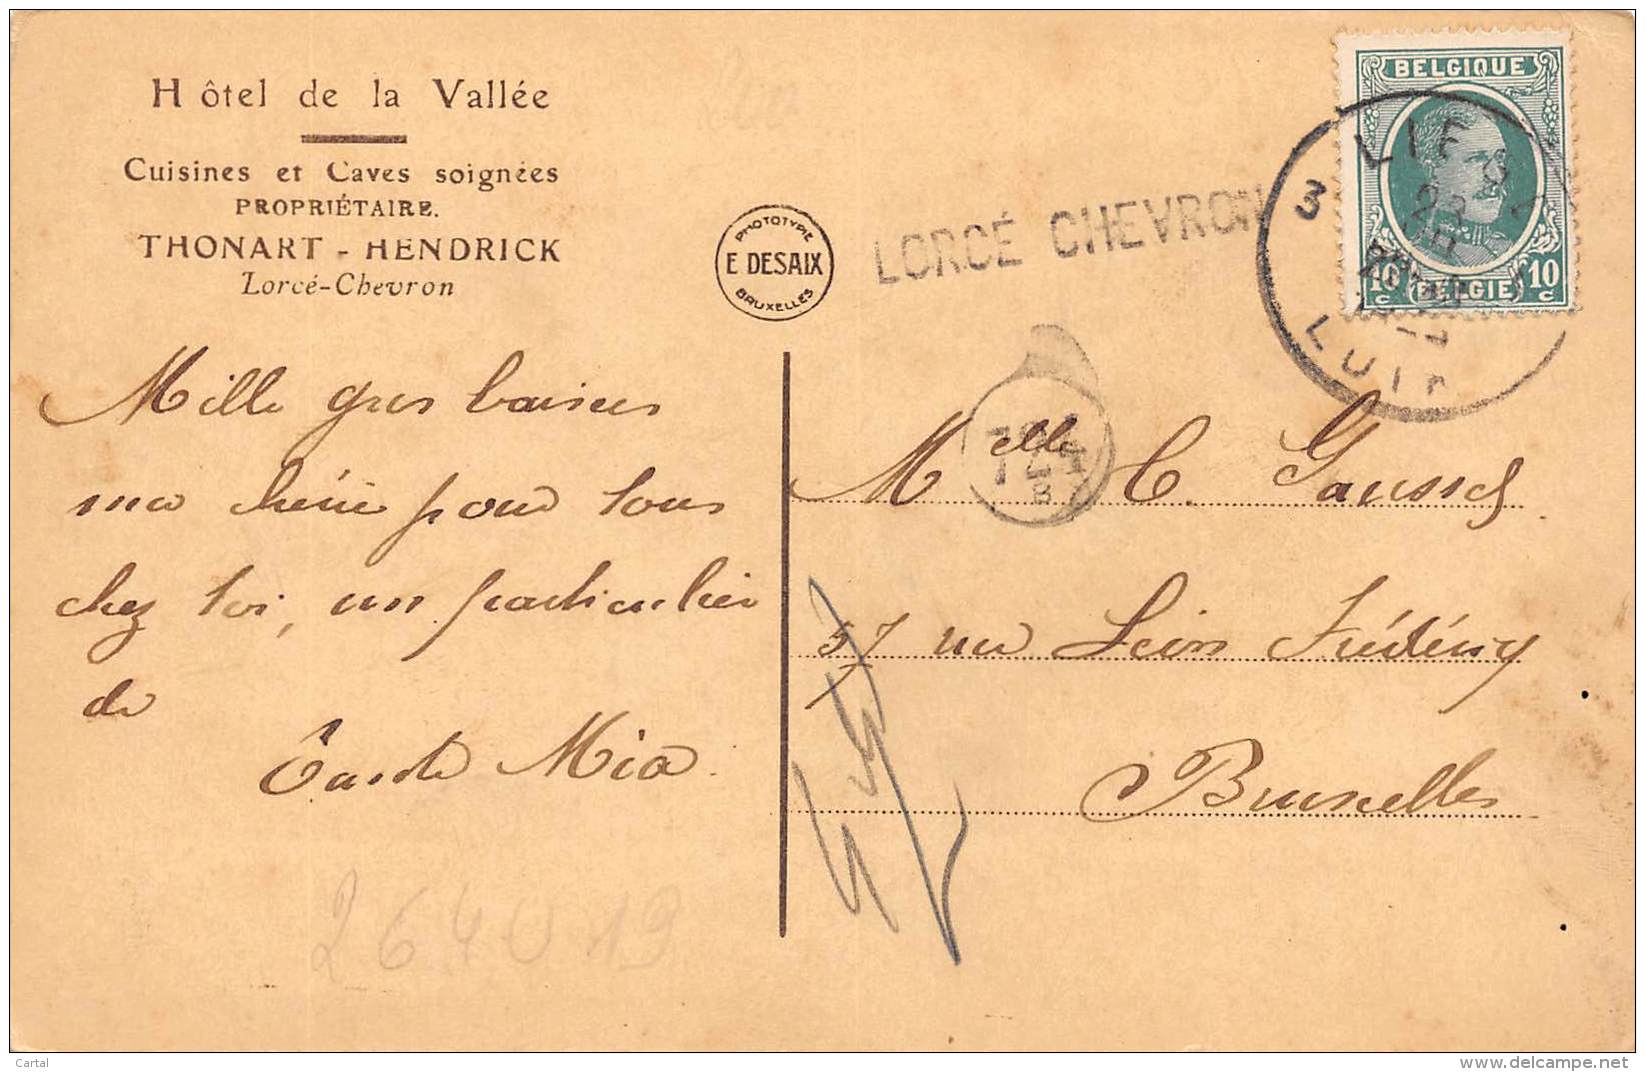 Hôtel de la Vallée
Cuisines et Caves soignées
PROPRIÉTAIRE.
THONART - HENDRICK
Lorcé-Chevron
PHOTOTYPIE
E DESAIX
BRUXELLES
LORCÉ CHEVRON
BELGIQUE
10 c BELGIE 10 c
3 LIE
23
LUIT
Mille gros baisers
ma chérie pour tous
chez toi, un particulier
de
Tante Mia.
Melle C.
57 rue Léon Frédéricq
Bruxelles
264 019
Cartal
www.delcampe.net